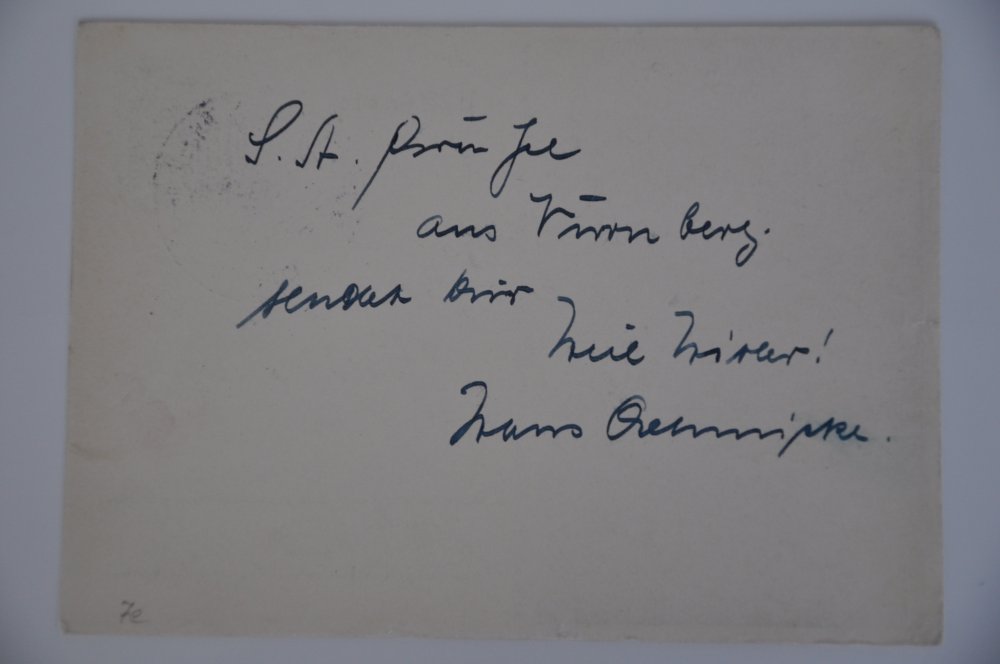 S. A. Grüße
aus Nürnberg.
sendet dir
Heil Hitler!
Hans
7e